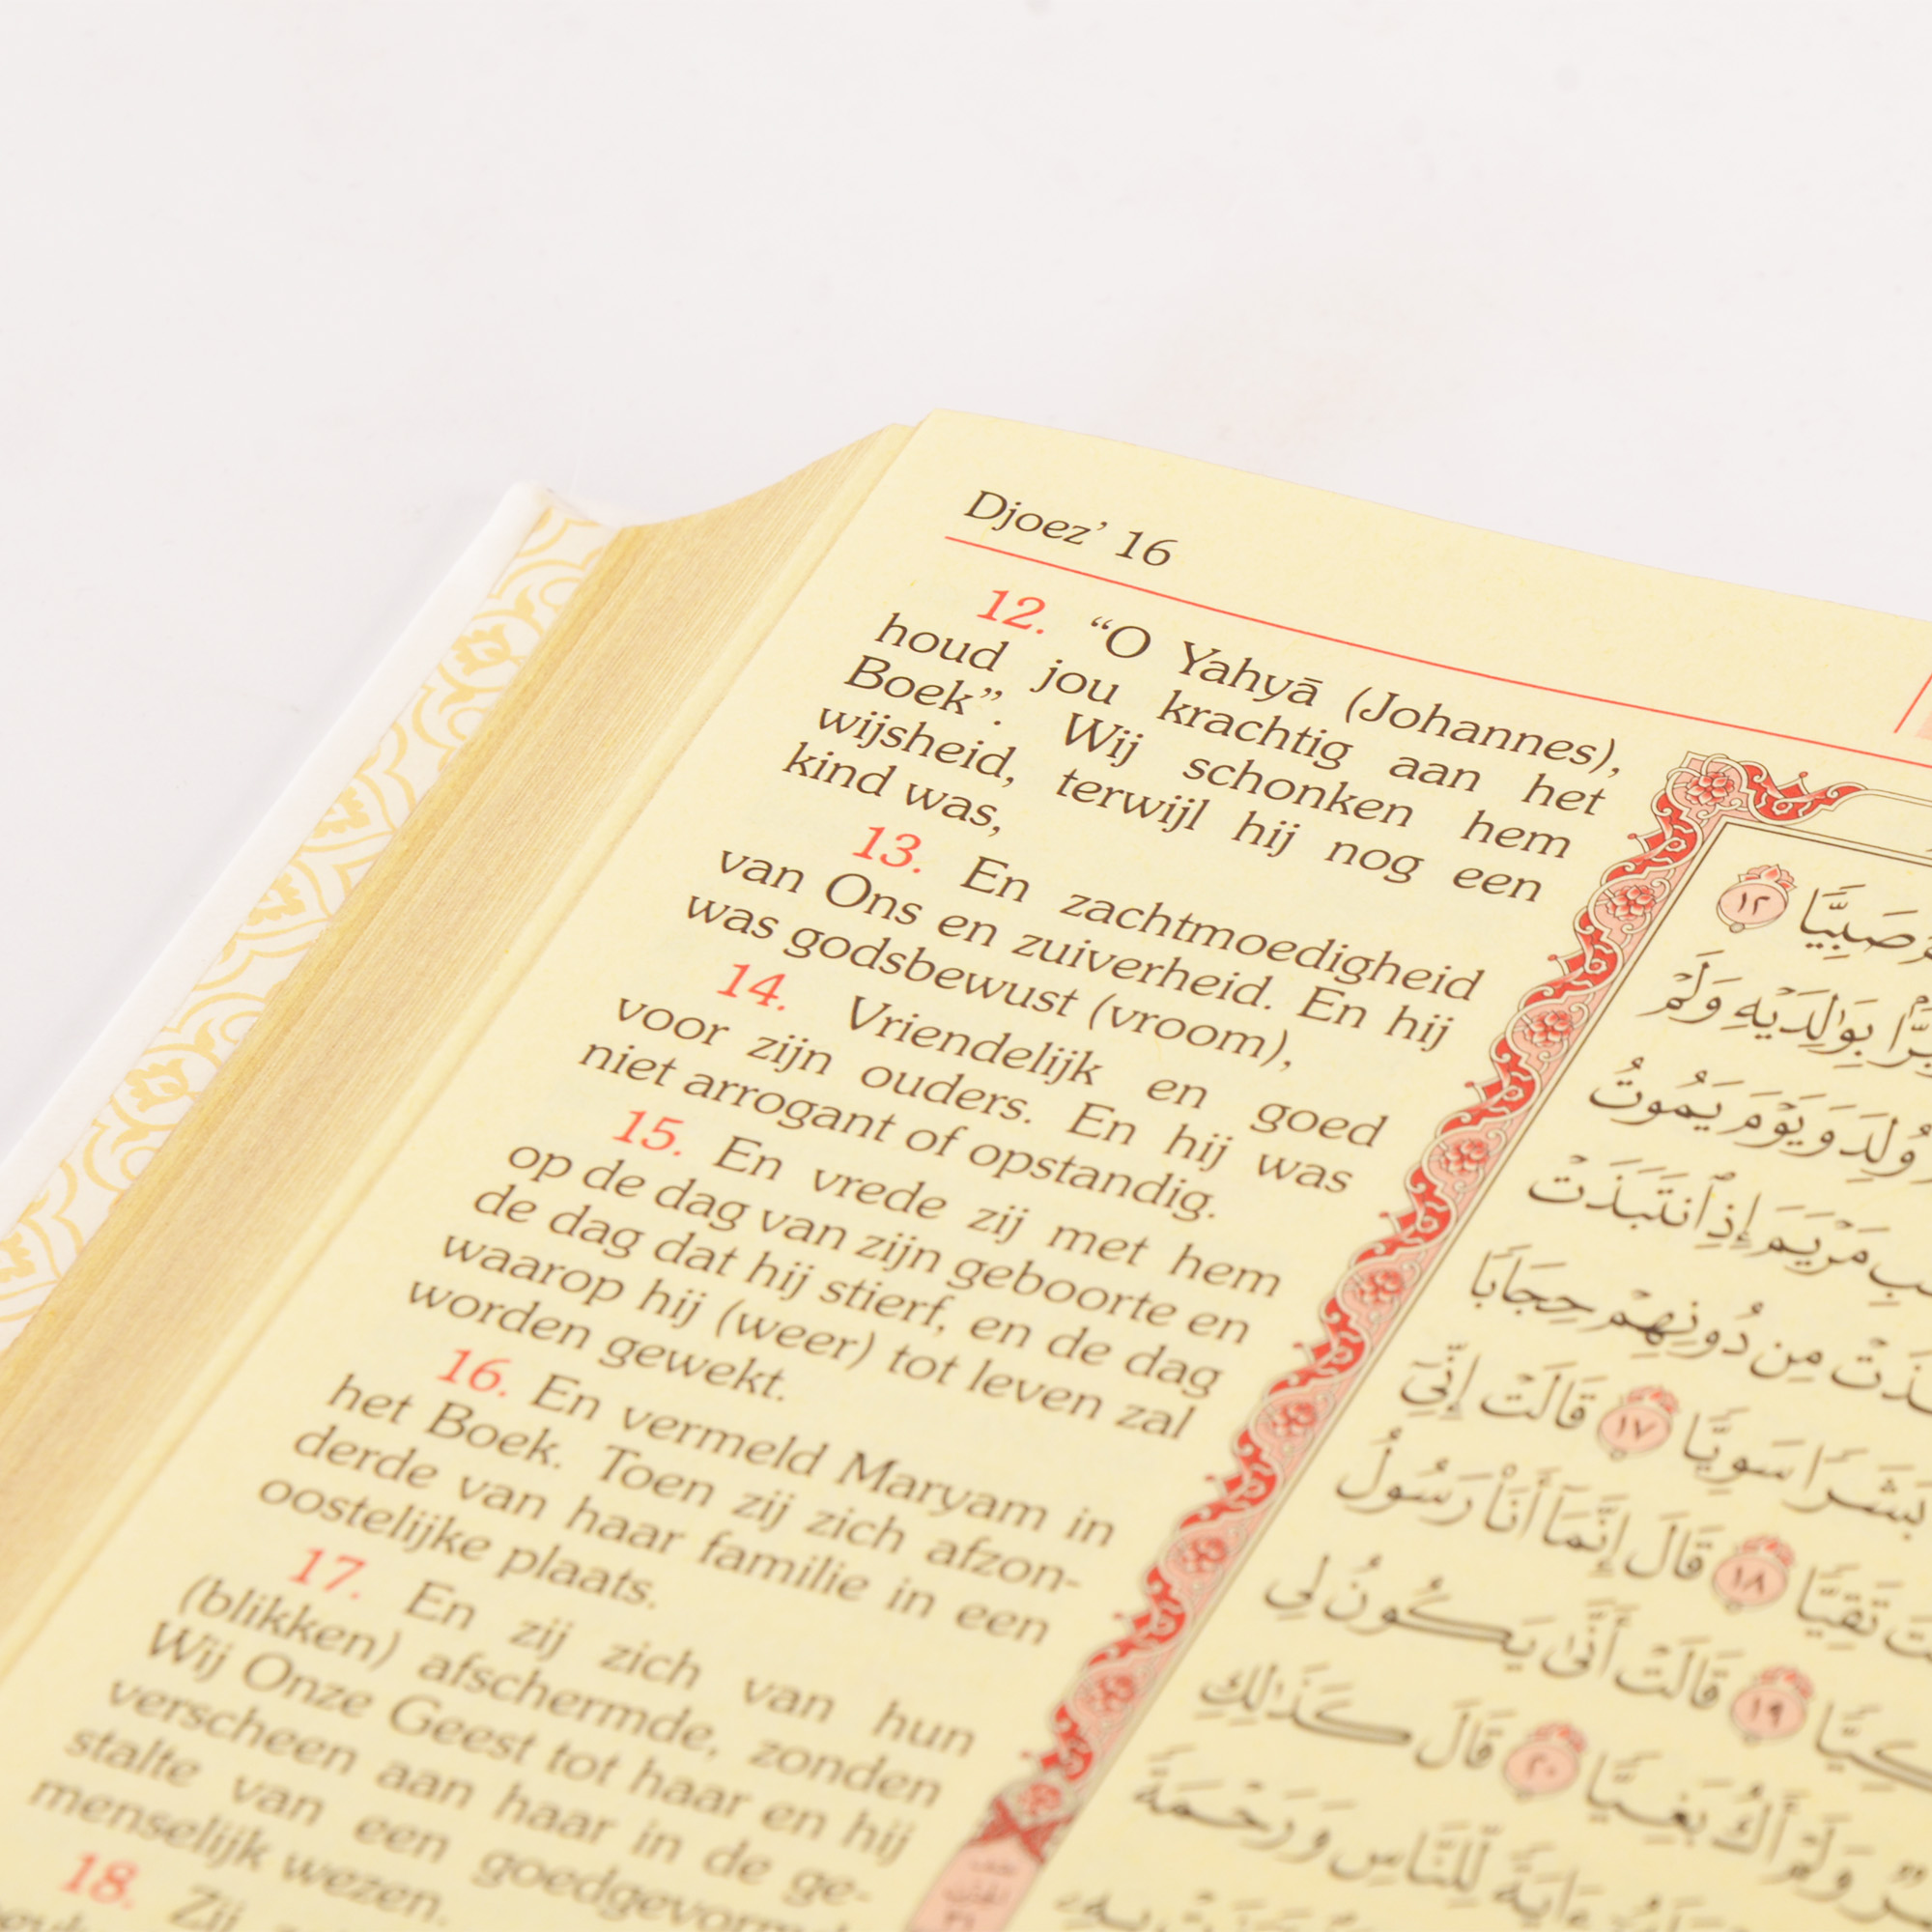 Djoez’ 16
12. “O Yahyā (Johannes),
houd jou krachtig aan het
Boek”. Wij schonken hem
wijsheid, terwijl hij nog een
kind was,
13. En zachtmoedigheid
van Ons en zuiverheid. En hij
was godsbewust (vroom),
14. Vriendelijk en goed
voor zijn ouders. En hij was
niet arrogant of opstandig.
15. En vrede zij met hem
op de dag van zijn geboorte en
de dag dat hij stierf, en de dag
waarop hij (weer) tot leven zal
worden gewekt.
16. En vermeld Maryam in
het Boek. Toen zij zich afzon-
derde van haar familie in een
oostelijke plaats.
17. En zij zich van hun
(blikken) afschermde, zonden
Wij Onze Geest tot haar en hij
verscheen aan haar in de ge-
stalte van een
menselijk wezen.
18. Zij
صَبِيًّا ١٢
بِوَٰلِدَيْهِ وَلَمْ
وُلِدَ وَيَوْمَ يَمُوتُ
مَرْيَمَ إِذِ ٱنتَبَذَتْ
مِن دُونِهِمْ حِجَابًا
بَشَرًا سَوِيًّا ١٧ قَالَتْ إِنِّىٓ
تَقِيًّا ١٨ قَالَ إِنَّمَآ أَنَا۠ رَسُولُ
١٩ قَالَتْ أَنَّىٰ يَكُونُ لِى
وَلَمْ أَكُ بَغِيًّا ٢٠ قَالَ كَذَٰلِكِ
ءَايَةً لِّلنَّاسِ وَرَحْمَةً